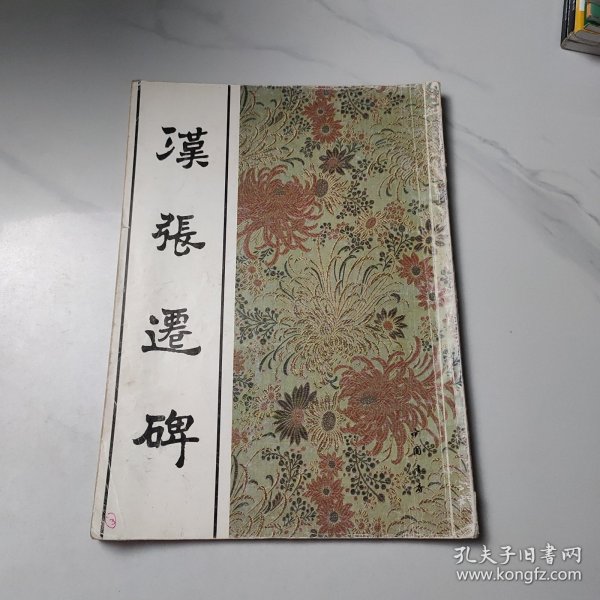 漢張遷碑
中国书店
孔夫子旧书网
www.kongfz.com